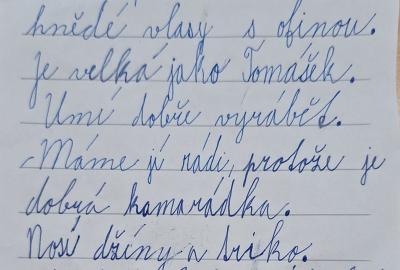 hnědé vlasy s ofinou.
Je velká jako Tomášek.
Umí dobře vyrábět.
Máme jí rádi, protože je
dobrá kamarádka.
Nosí džíny a triko.